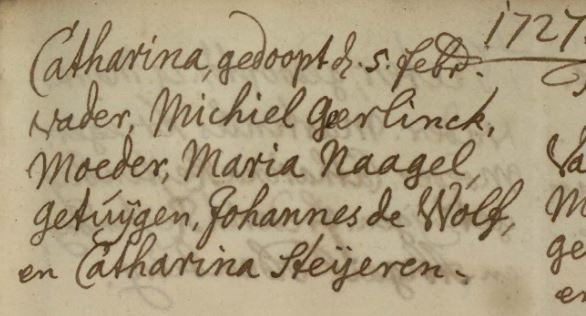 1727.
Catharina, gedoopt d. 5. febr.
vader, Michiel Geerlinck,
Moeder, Maria Naagel,
getúÿgen, Johannes de Wolf,
en Catharina Steÿeren.
Va
M
ge
en